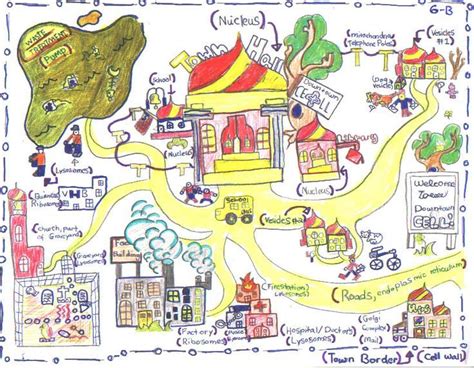 (Nucleus)
6-B
WASTE
TREATMENT
PUMP
Town Hall
(School)
(mitochondria)
(Telephone Poles)
(Vesicles
#1)
Downtown
CELL!
(Dog)
vesicles
Library
(Nucleus)
(Nucleus)
(Lysosomes)
VHB
Ribosomes)
Welcome
To
Downtown
CELL!
School
(Vesicles #2)
(church, part of
Graveyard)
(Graveyard)
Lysosomes)
Building
(Factory)
Ribosomes)
(Firestation)
Lysosomes)
(Hospital/Doctors)
(Lysosomes)
(Roads, endoplasmic reticulum)
(Golgi
Complex)
(Mail)
(Town Border)
(Cell wall)